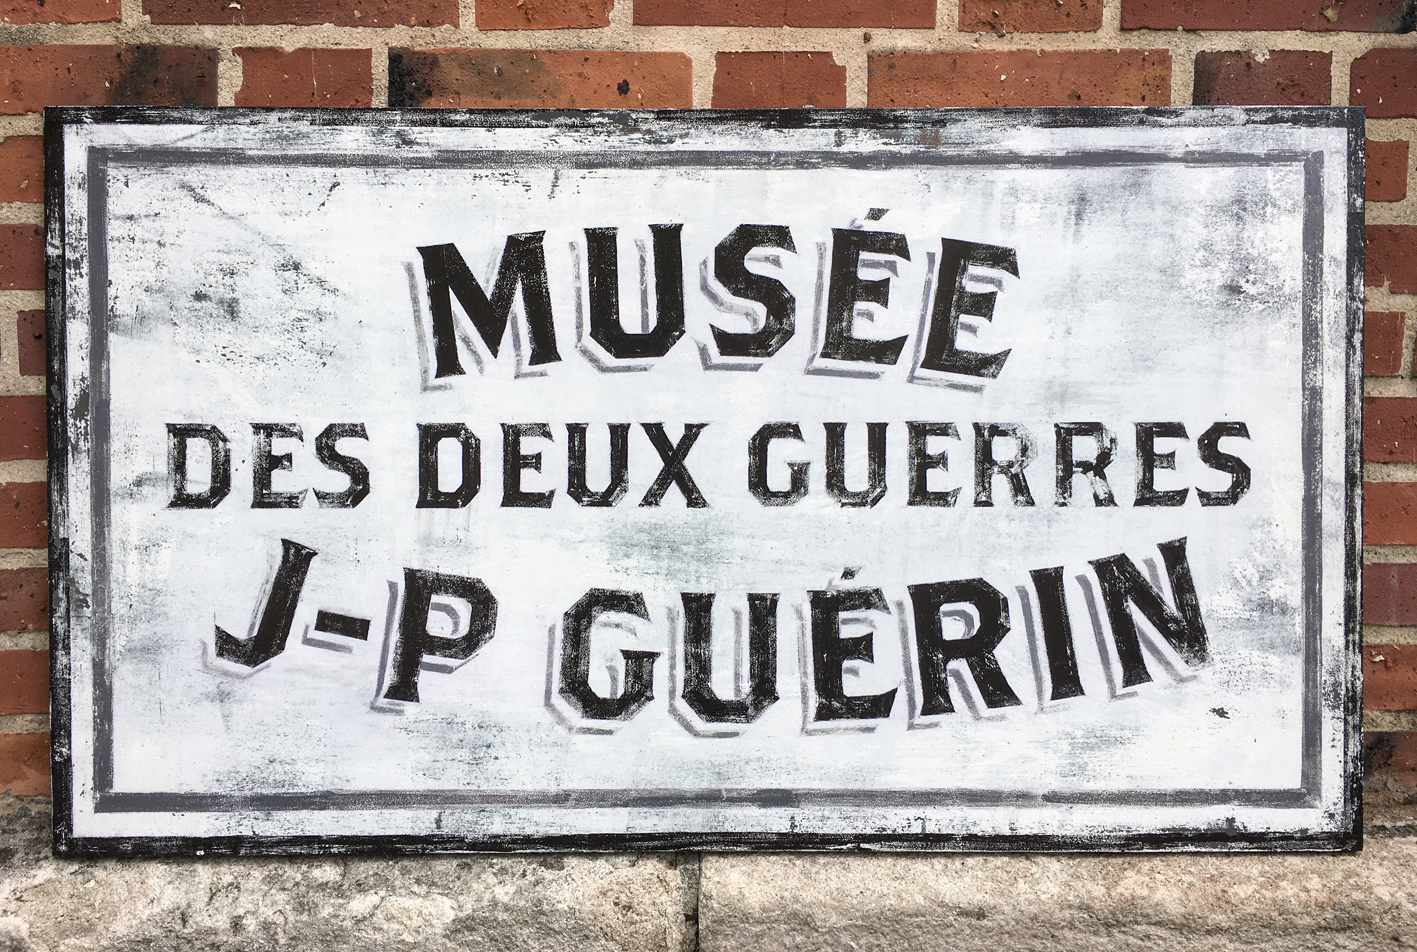 MUSÉE
DES DEUX GUERRES
J-P GUÉRIN